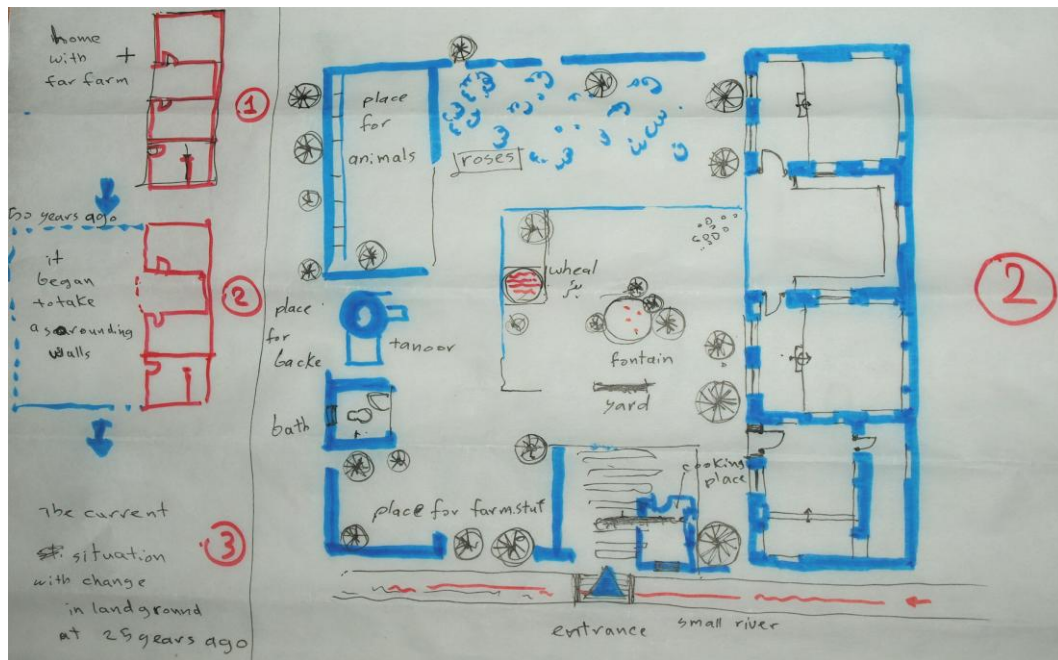 home
with +
far farm
1
50 years ago
it
began
to take
a sarounding
walls
2
The current
situation
with change
in land ground
at 25 years ago
3
place
for
animals
roses
wheal
بئر
fontain
yard
place
for
backe
tanoor
bath
cooking
place
place for farm.stuf
entrance
small river
2